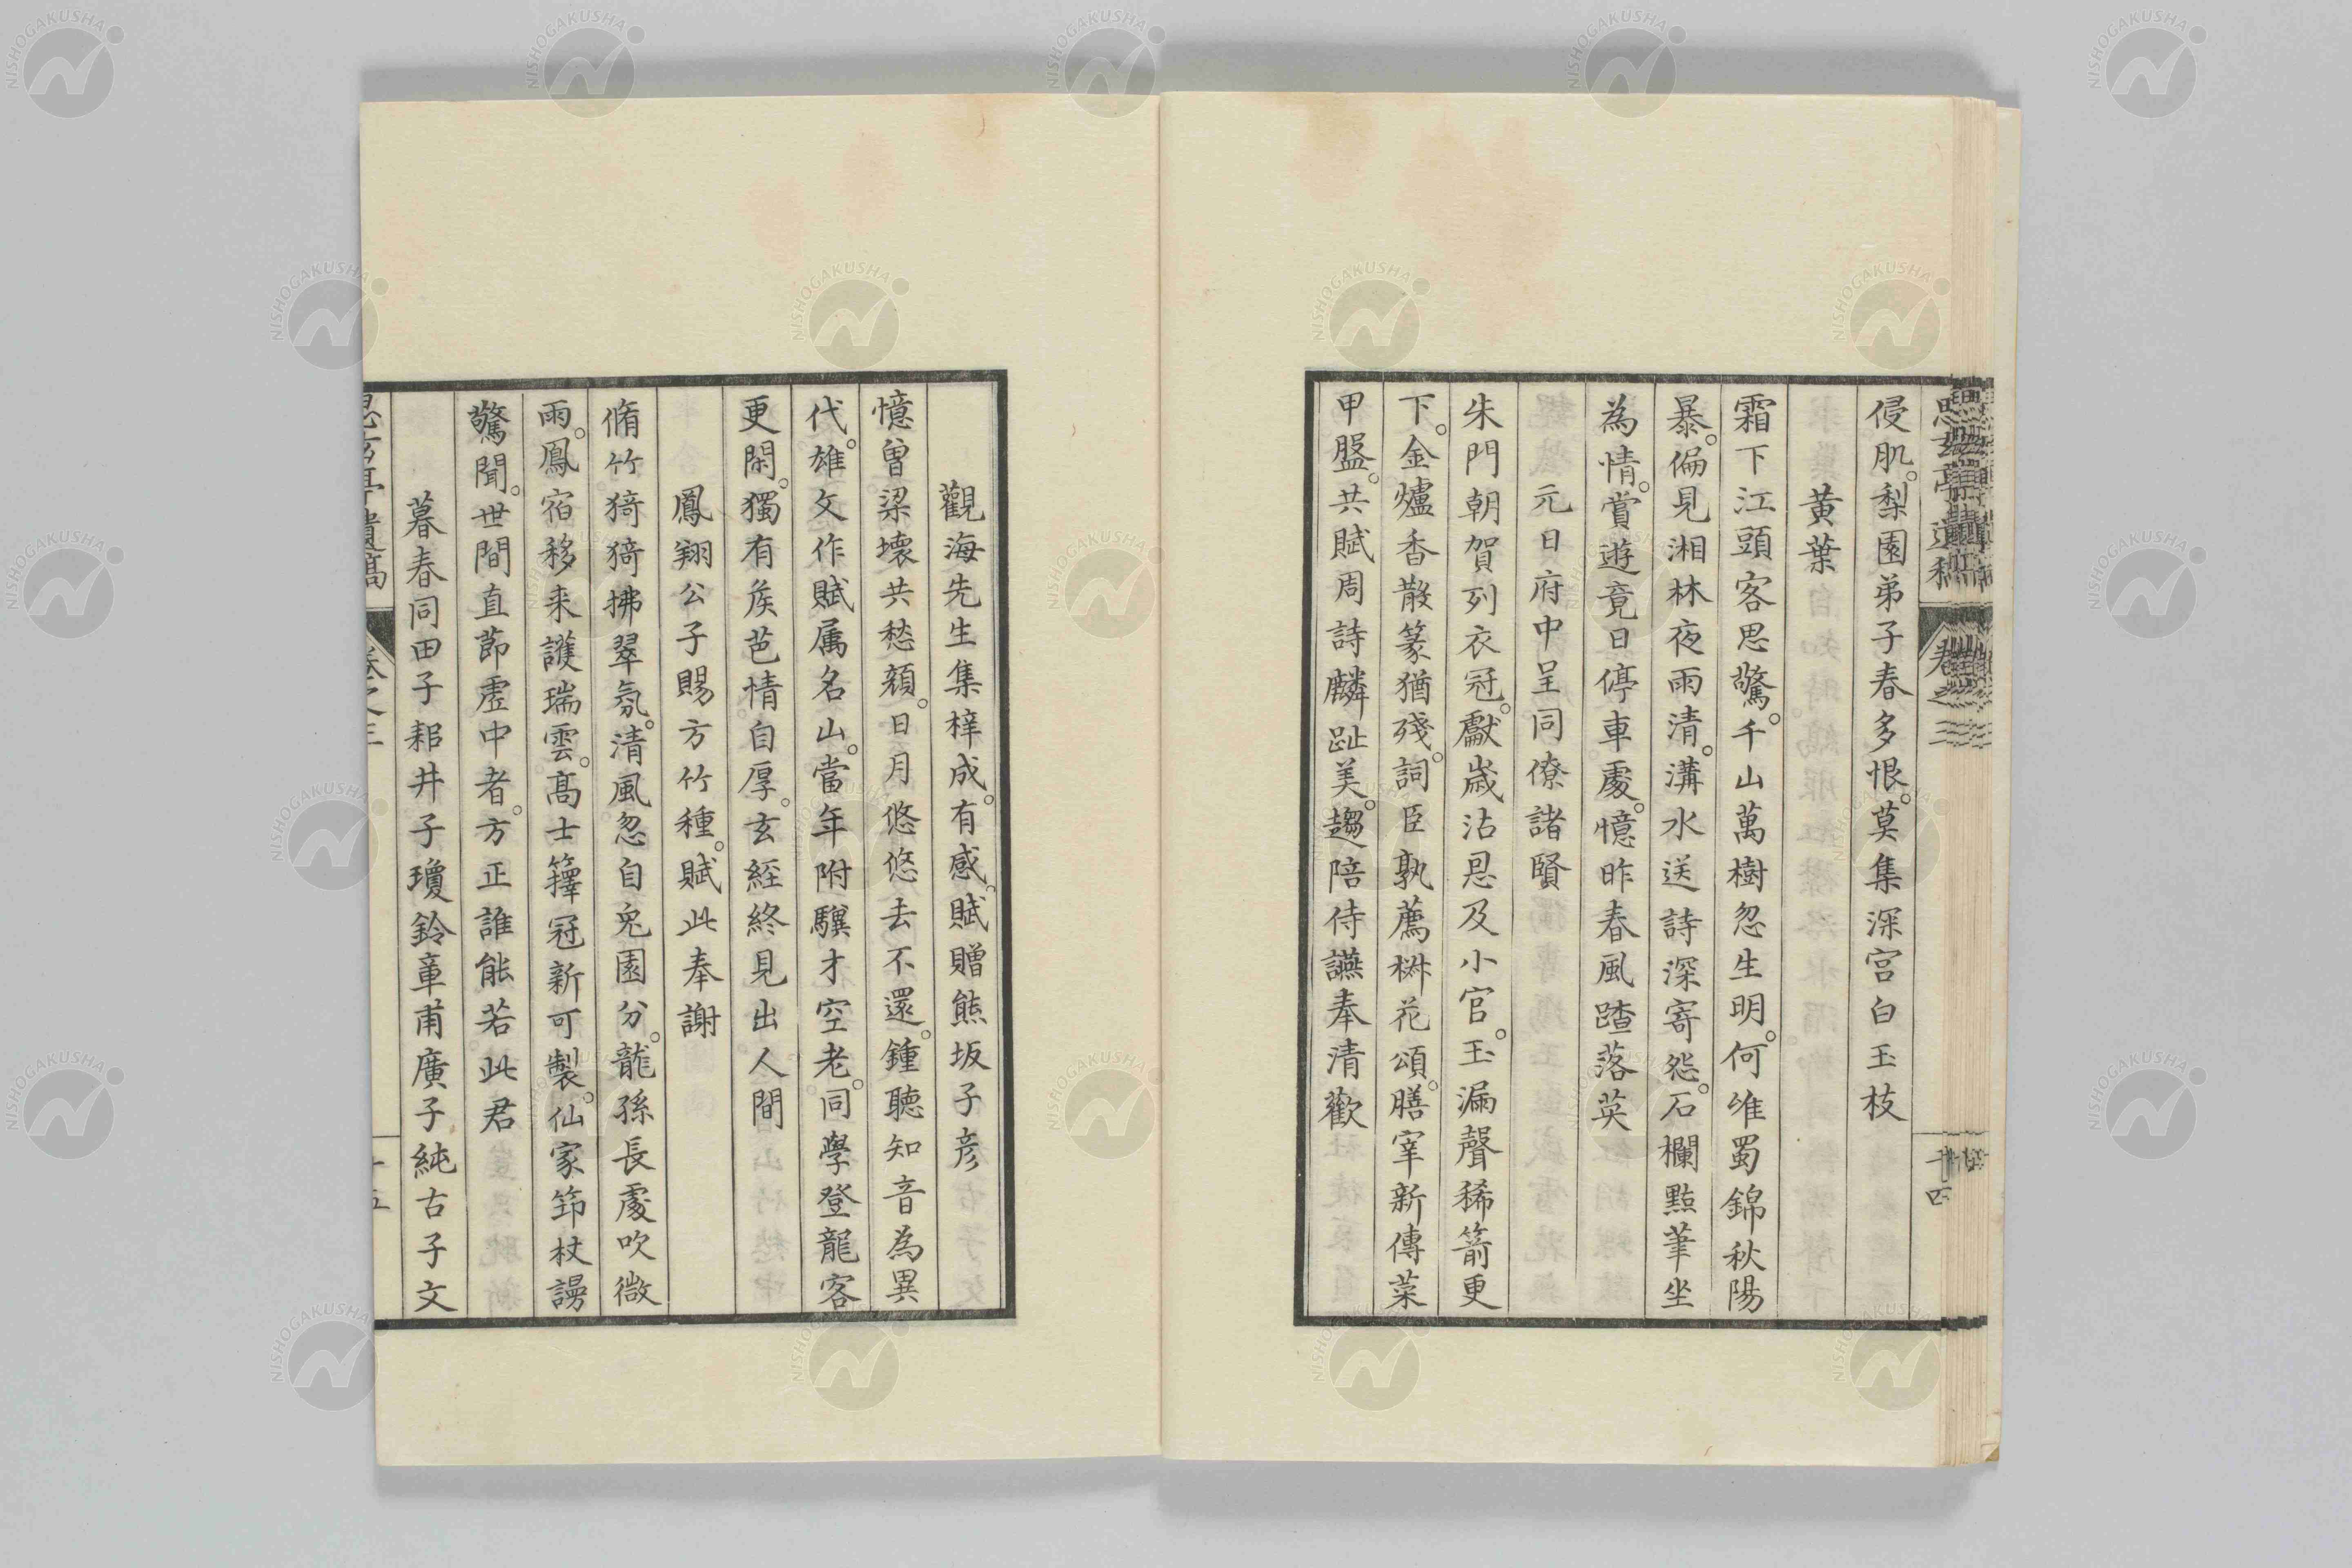 侵肌。梨園弟子春多恨。莫集深宮白玉枝
黄葉
霜下江頭客思驚。千山萬樹忽生明。何唯蜀錦秋陽
暴。偏見湘林夜雨清。溝水送詩深寄怨。石欄點筆坐
為情。賞遊竟日停車處。憶昨春風蹅落英
元日府中呈同僚諸賢
朱門朝賀列衣冠。獻歲沾恩及小官。玉漏聲稀箭更
下。金爐香散篆猶殘。詞臣孰薦椒花頌。膳宰新傳菜
甲盤。共賦周詩麟趾美。趨陪侍讌奉清歡
觀海先生集梓成。有感。賦贈熊坂子彦
憶曽梁壞共愁顔。日月悠悠去不還。鍾聽知音為異
代。雄文作賦属名山。當年附驥才空老。同學登龍客
更閑。獨有矦芭情自厚。玄經終見出人間
鳳翔公子賜方竹種。賦此奉謝
脩竹猗猗拂翠氛。清風忽自兎園分。龍孫長處吹微
雨。鳳宿移来護瑞雲。髙士籜冠新可製。仙家笻杖謾
驚聞。世間直莭虛中者。方正誰能若此君
暮春同田子耜井子瓊鈴章甫廣子純古子文
思玄亭遺稿
卷之三
十四
十五
NISHOGAKUSHA